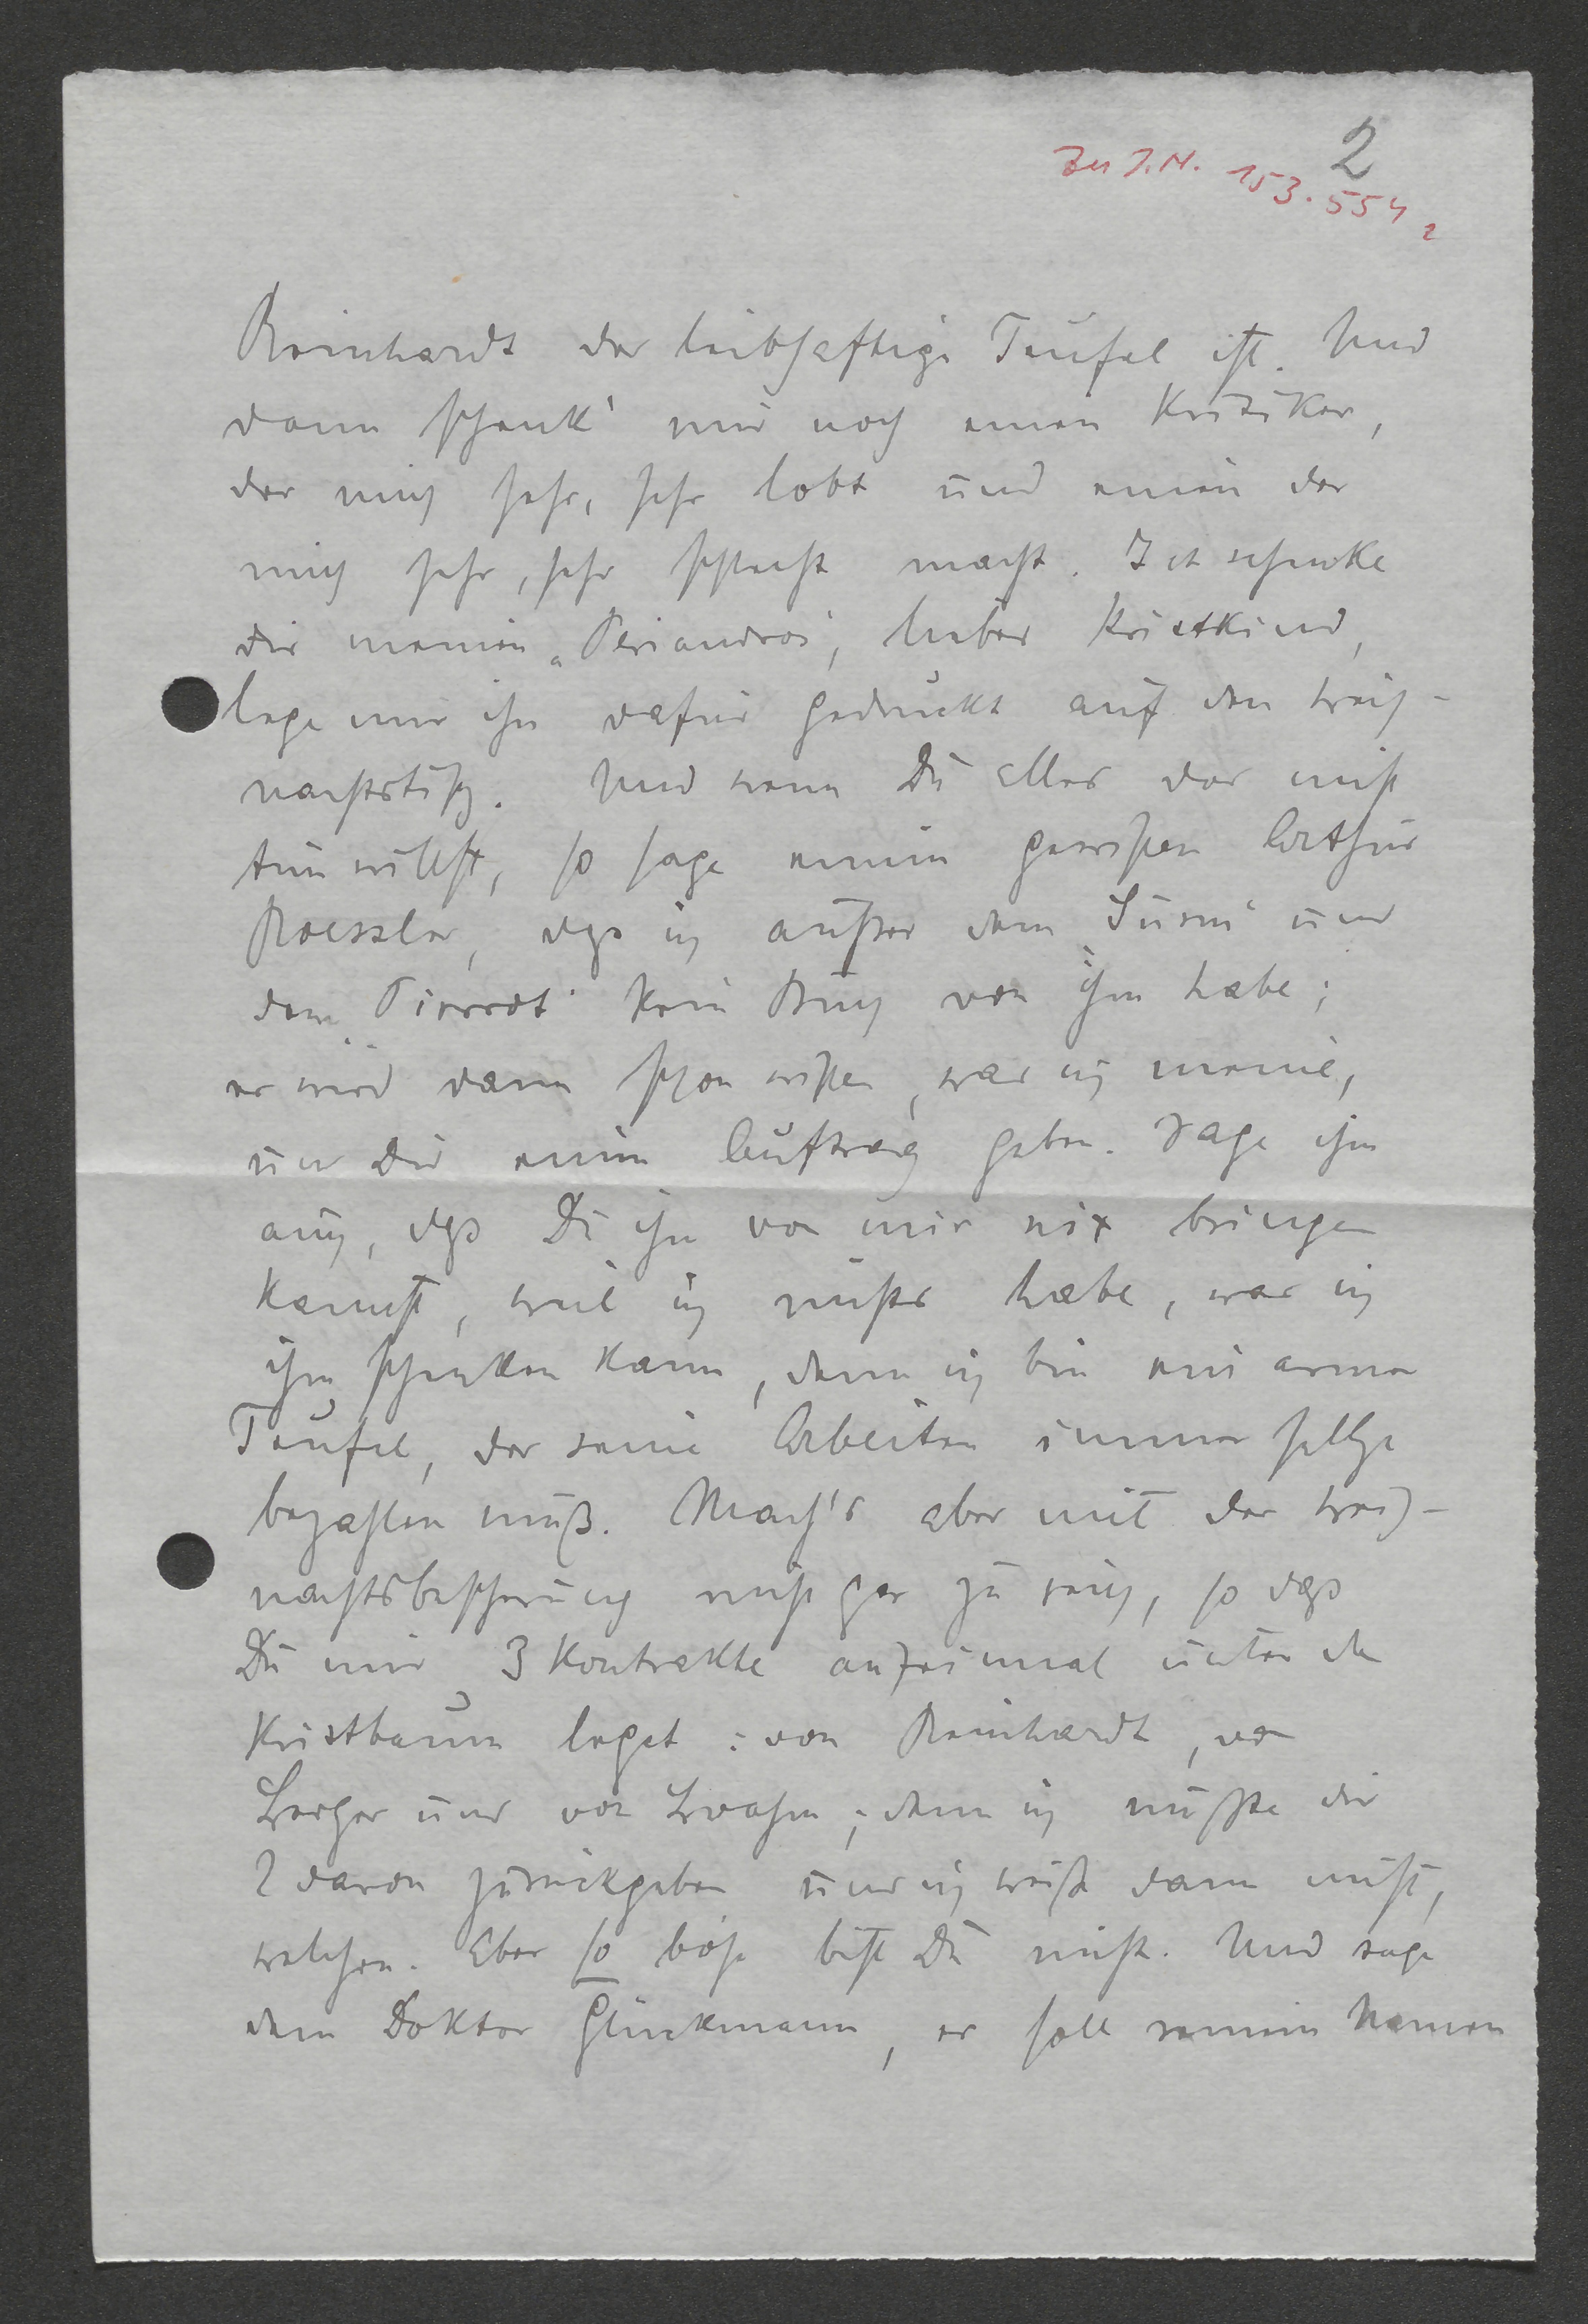 2
Zu I.N. 153.554
2
Reinhardt der leibhaftige Teufel ist. Und
dann schenk' mir noch einen Kritiker,
der mich sehr, sehr lobt und einen der
mich sehr, sehr schlecht macht. Ich schenke
dir meinen „Periandros", lieber Kristkind,
lege mir ihn dafür gedruckt auf den Weih-
nachtstisch. Und wenn Du alles das nicht
tun willst, so sage einem gewissen Arthur
Roessler, dass ich außer dem „Susmi" und
dem „Pierrot" kein Buch von ihm habe;
er wird dann schon wissen, was ich meine,
und Dir einen Auftrag geben. Sage ihm
auch, dass Du ihm von mir nix bringen
kannst, weil ich nichts habe, was ich
ihm schenken kann, denn ich bin ein armer
Teufel, der seine Arbeiten immer selbst
bezahlen muß. Mach's aber mit der Weih-
nachtsbescherung nicht gar zu reich, so dass
Du mir 3 Kontrakte aufeinmal unter den
Kristbaum legst: von Reinhardt, von
Berger und von Brahm; denn ich müsste dir
2 davon zurückgeben und ich weiß dann nicht,
welchen. Aber so böse bist Du nicht. Und sage
dem Doktor Glückmann, er soll seinen Namen